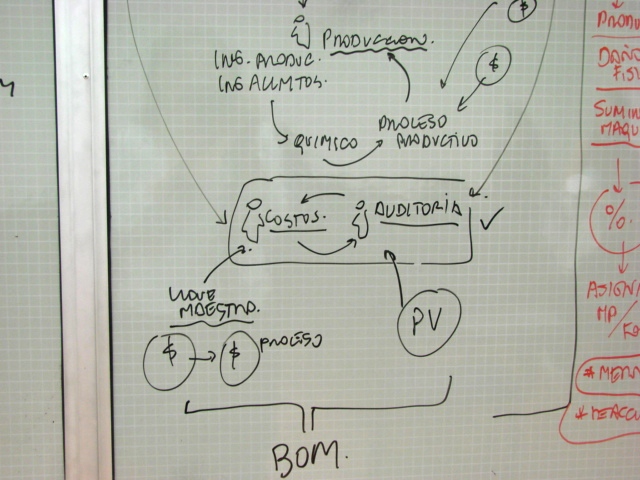 $
PRODUCCION.
ING. PRODUC.
ING ALIMTOS.
$
QUIMICO
PROCESO
PRODUCTIVO
COSTOS.
AUDITORÍA
LLAVE
MAESTRA.
PV
$ → $ PROCESO
BOM.
PRODU
DAÑO
FISI
SUMIN
MAQU
%
ASIGNA
MP/
*MERM